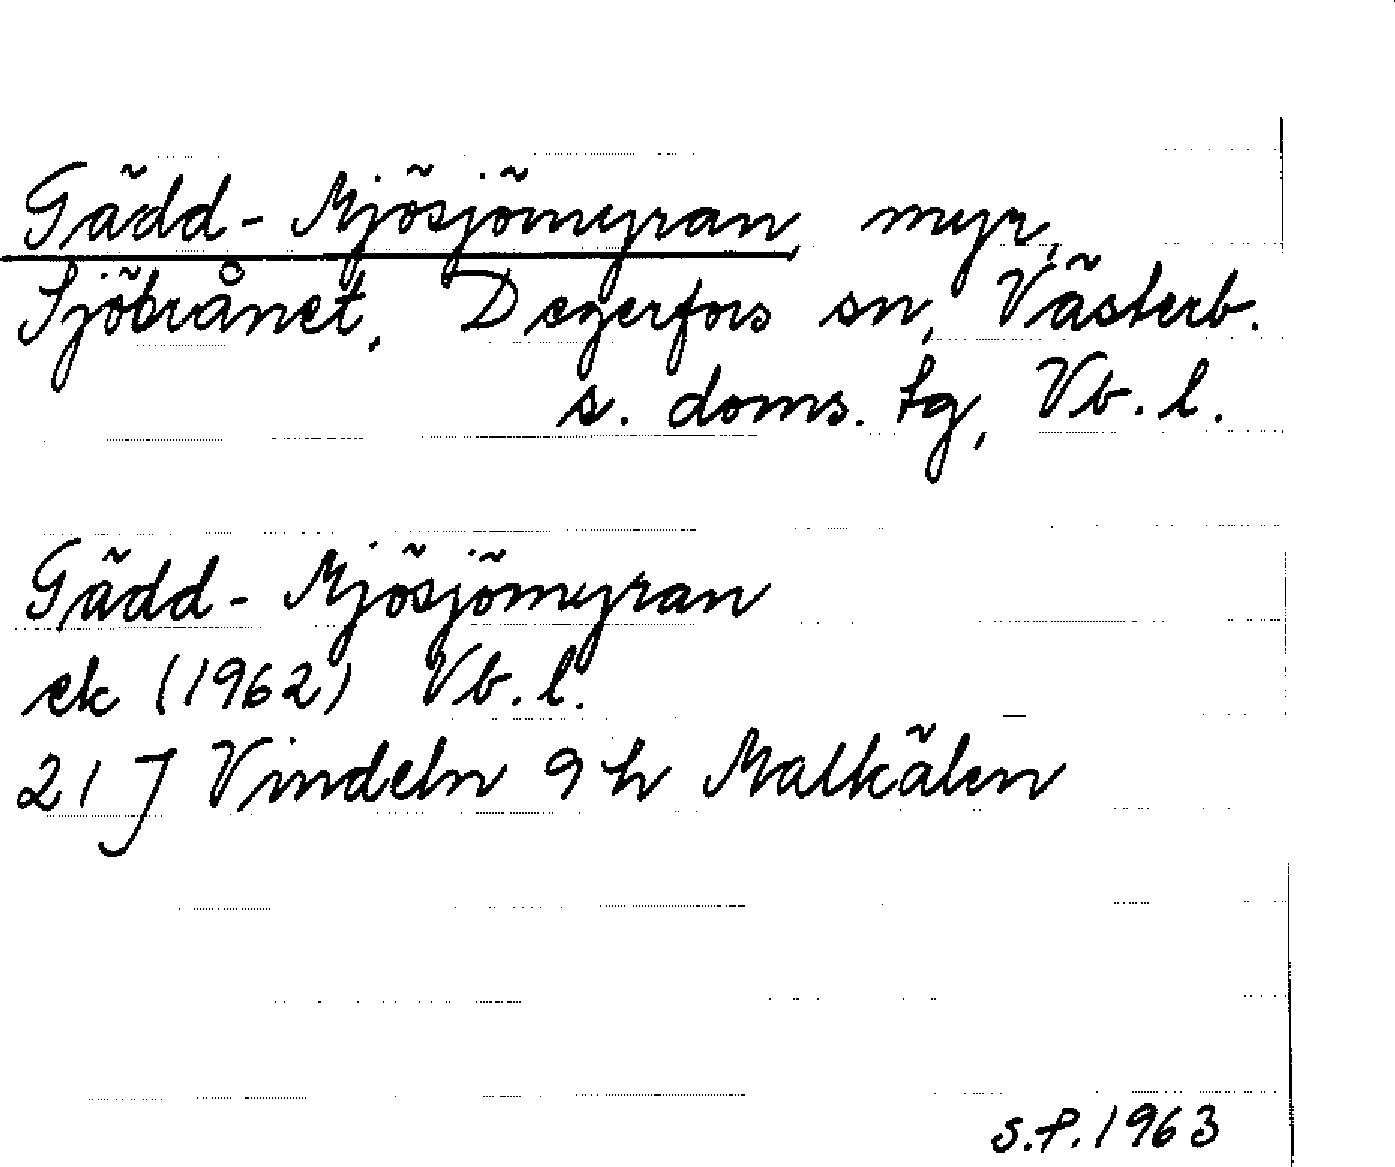 Gädd-Mjösjömyran, myr,
Sjöbrånet, Degerfors sn, Västerb.
s. doms. tg, Vb. l.
Gädd-Mjösjömyran
ek (1962) Vb. l.
21 J Vindeln 9 h Malkälen
S.P. 1963